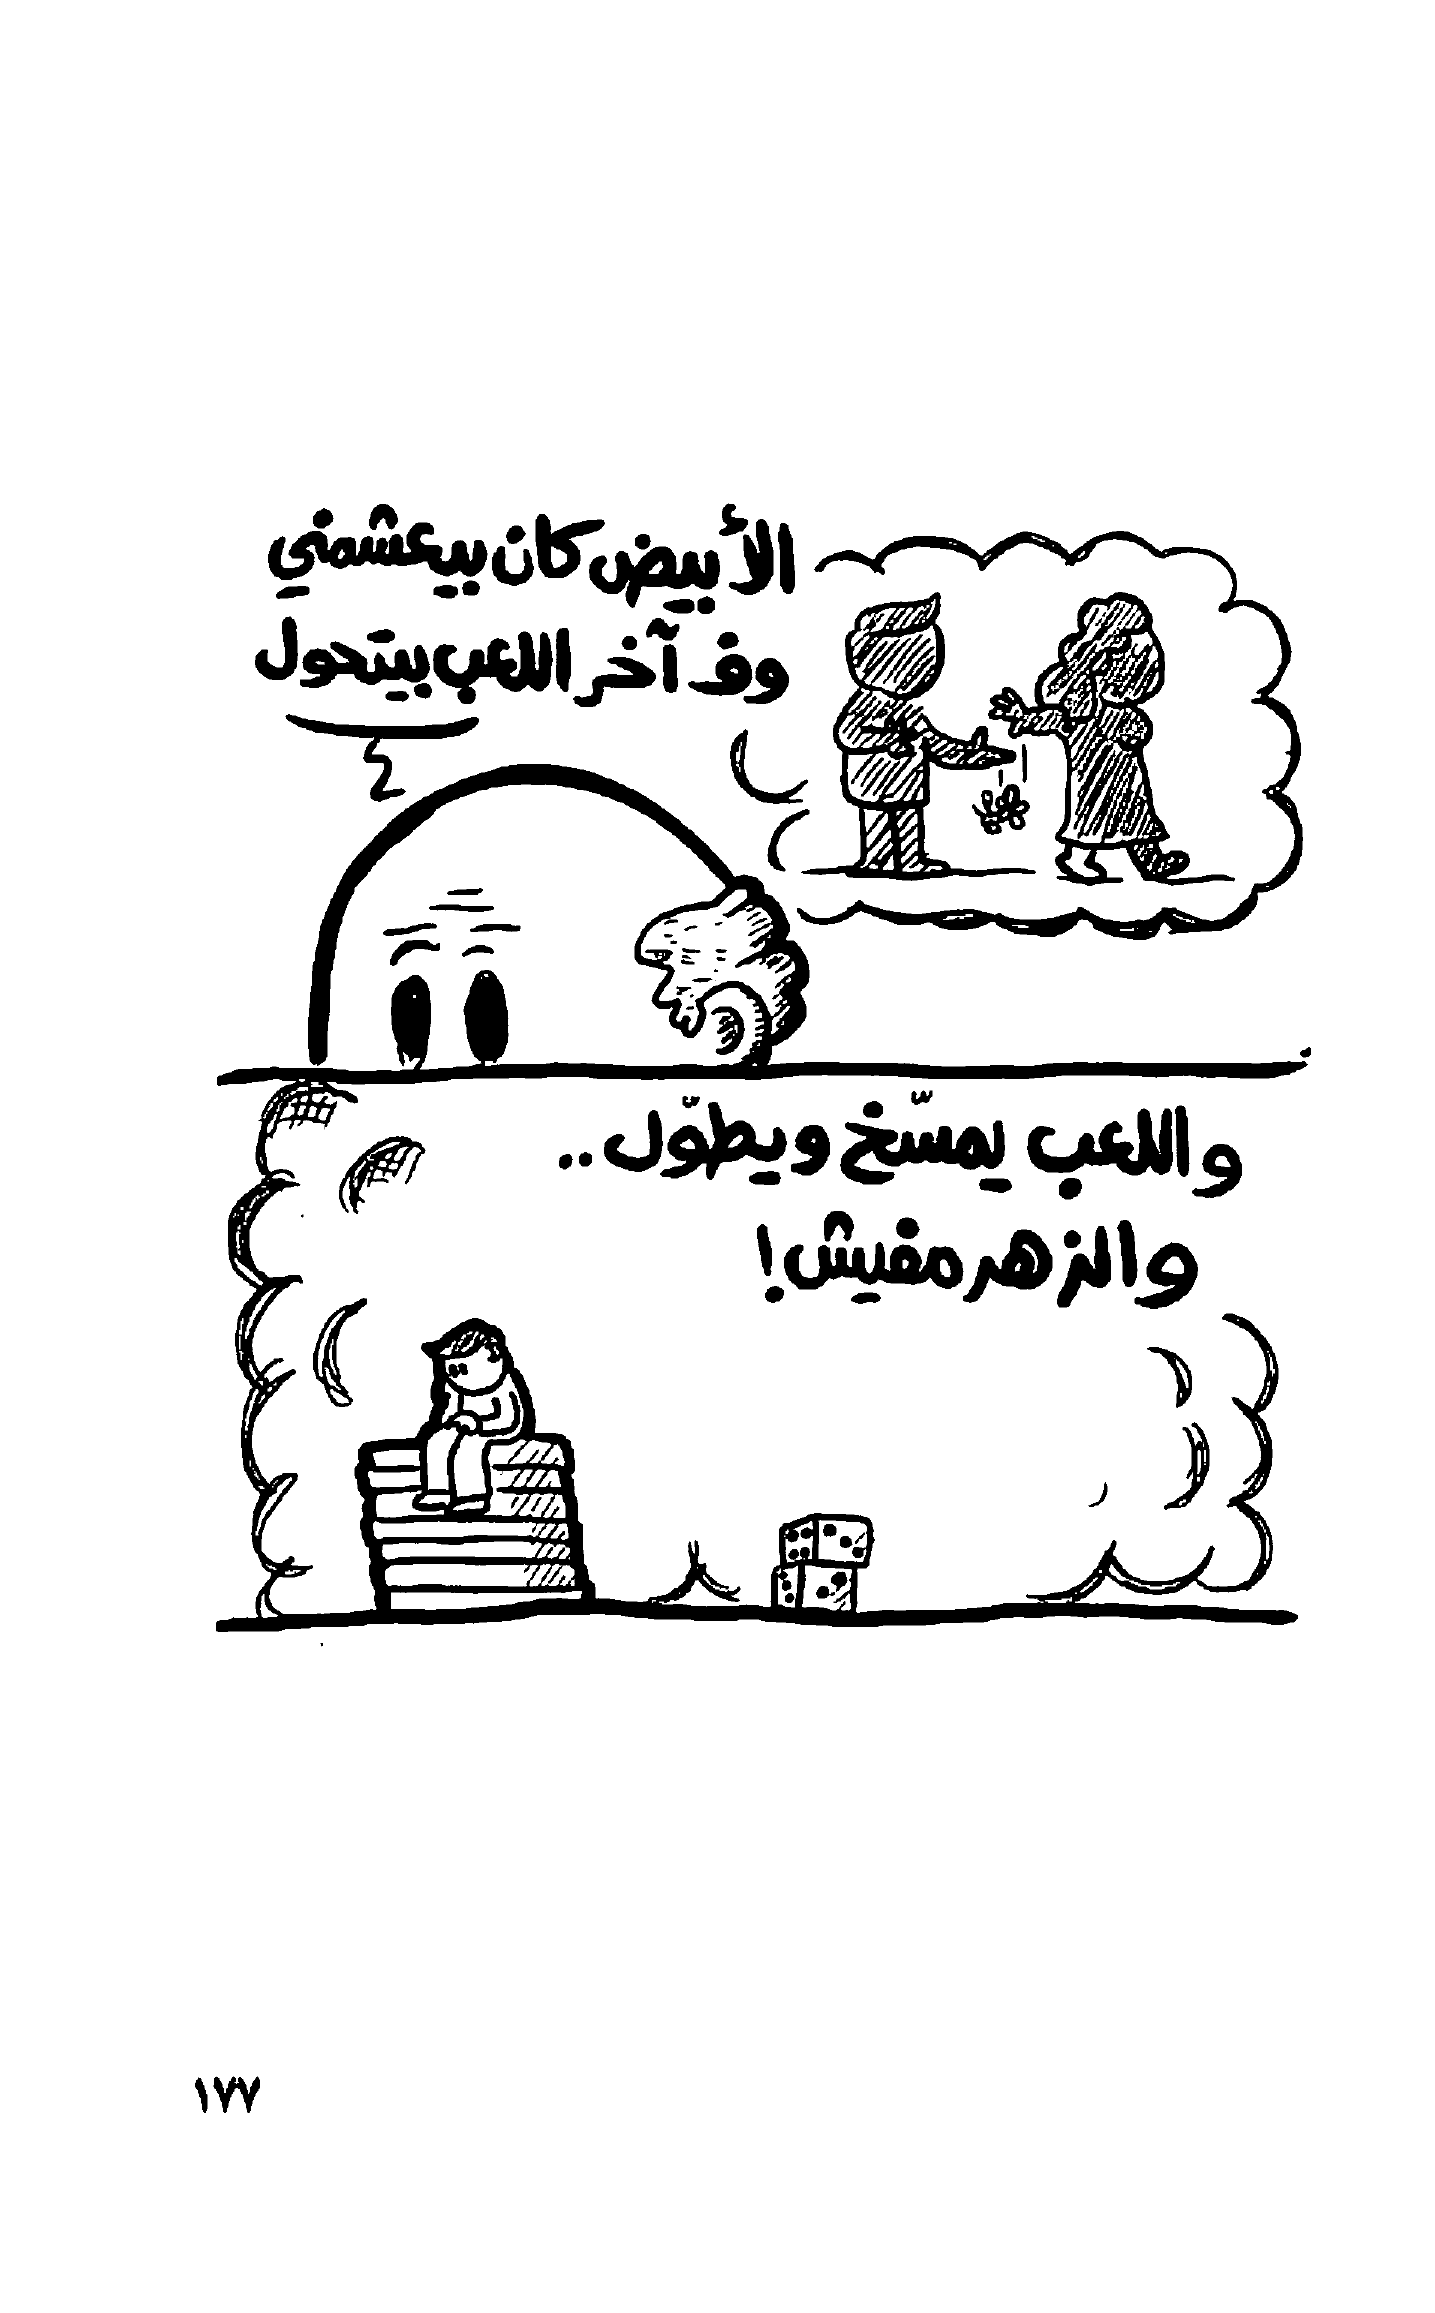 الأبيض كان بيعشمني
وف آخر اللعب بيتحول
واللعب يمسّخ ويطوّل..
والزهر مفيش!
١٧٧